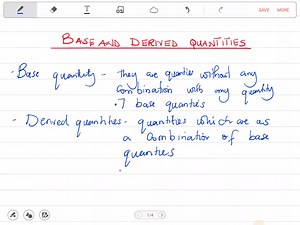 SAVE MORE
BASE AND DERIVED QUANTITIES
- Base quantity - They are quanties without any
combination with any quantity
. 7 base quanties
- Derived quantities - quantities which are as
a Combination of base
quanties
1/4